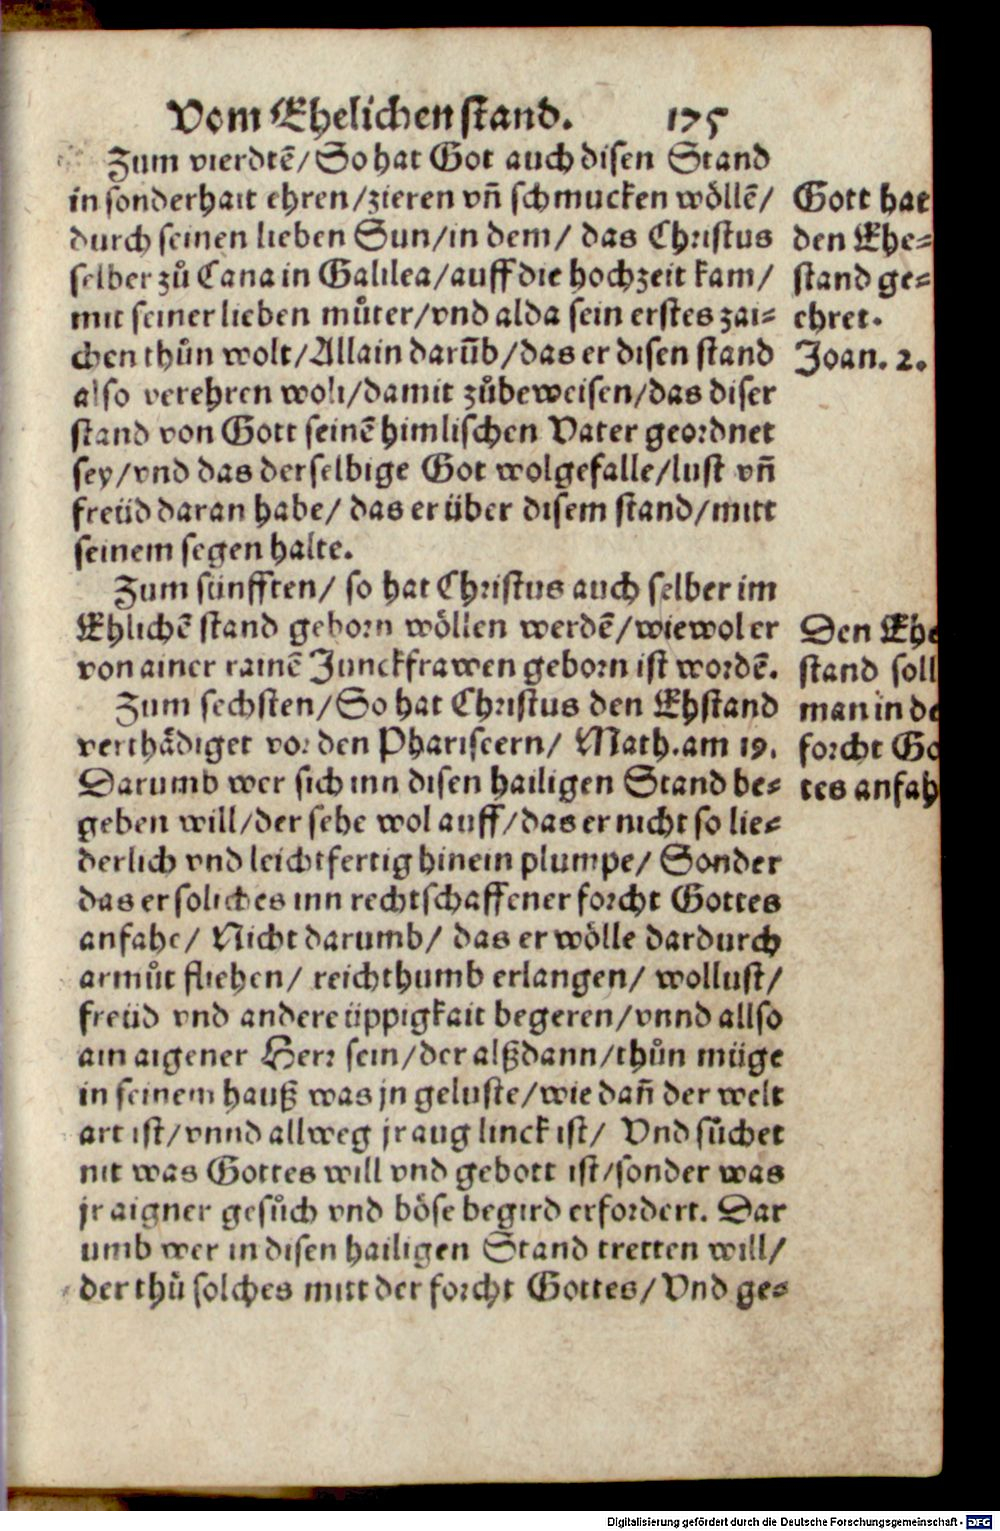 Vom Ehelichen stand. 175
Zum vierdtē/ So hat Got auch disen Stand
in sonderhait ehren/zieren vñ schmucken wöllē/
durch seinen lieben Sun/in dem/ das Christus
selber zů Cana in Galilea/auff die hochzeit kam/
mit seiner lieben můter/vnd alda sein erstes zai=
chen thůn wolt/Allain darūb/das er disen stand
also verehren wolt/damit zůbeweisen/das diser
stand von Gott seinē himlischen Vater geordnet
sey/vnd das derselbige Got wolgefalle/lust vñ
freüd daran habe/ das er über disem stand/mitt
seinem segen halte.
Zum fünfften/ so hat Christus auch selber im
Ehlichē stand geborn wöllen werdē/wiewol er
von ainer rainē Junckfrawen geborn ist wordē.
Zum sechsten/So hat Christus den Ehstand
verthädiget vor den Phariseern/ Math. am 19.
Darumb wer sich inn disen hailigen Stand be=
geben will/der sehe wol auff/das er nicht so lie=
derlich vnd leichtfertig hinein plumpe/ Sonder
das er soliches inn rechtschaffener forcht Gottes
anfahe/ Nicht darumb/ das er wölle dardurch
armůt fliehen/ reichthumb erlangen/ wollust/
freüd vnd andere üppigkait begeren/vnnd allso
ain aigener Herr sein/der alßdann/thůn müge
in seinem hauß was jn geluste/wie dañ der welt
art ist/vnnd allweg jr aug linck ist/ Vnd sůchet
nit was Gottes will vnd gebott ist/sonder was
jr aigner gesůch vnd böse begird erfordert. Dar
umb wer in disen hailigen Stand tretten will/
der thů solches mitt der forcht Gottes/ Vnd ge=
Gott hat
den Ehe=
stand ge=
ehret.
Joan. 2.
Den Ehe
stand soll
man in de
forcht Go
tes anfah
Digitalisierung gefördert durch die Deutsche Forschungsgemeinschaft - DFG